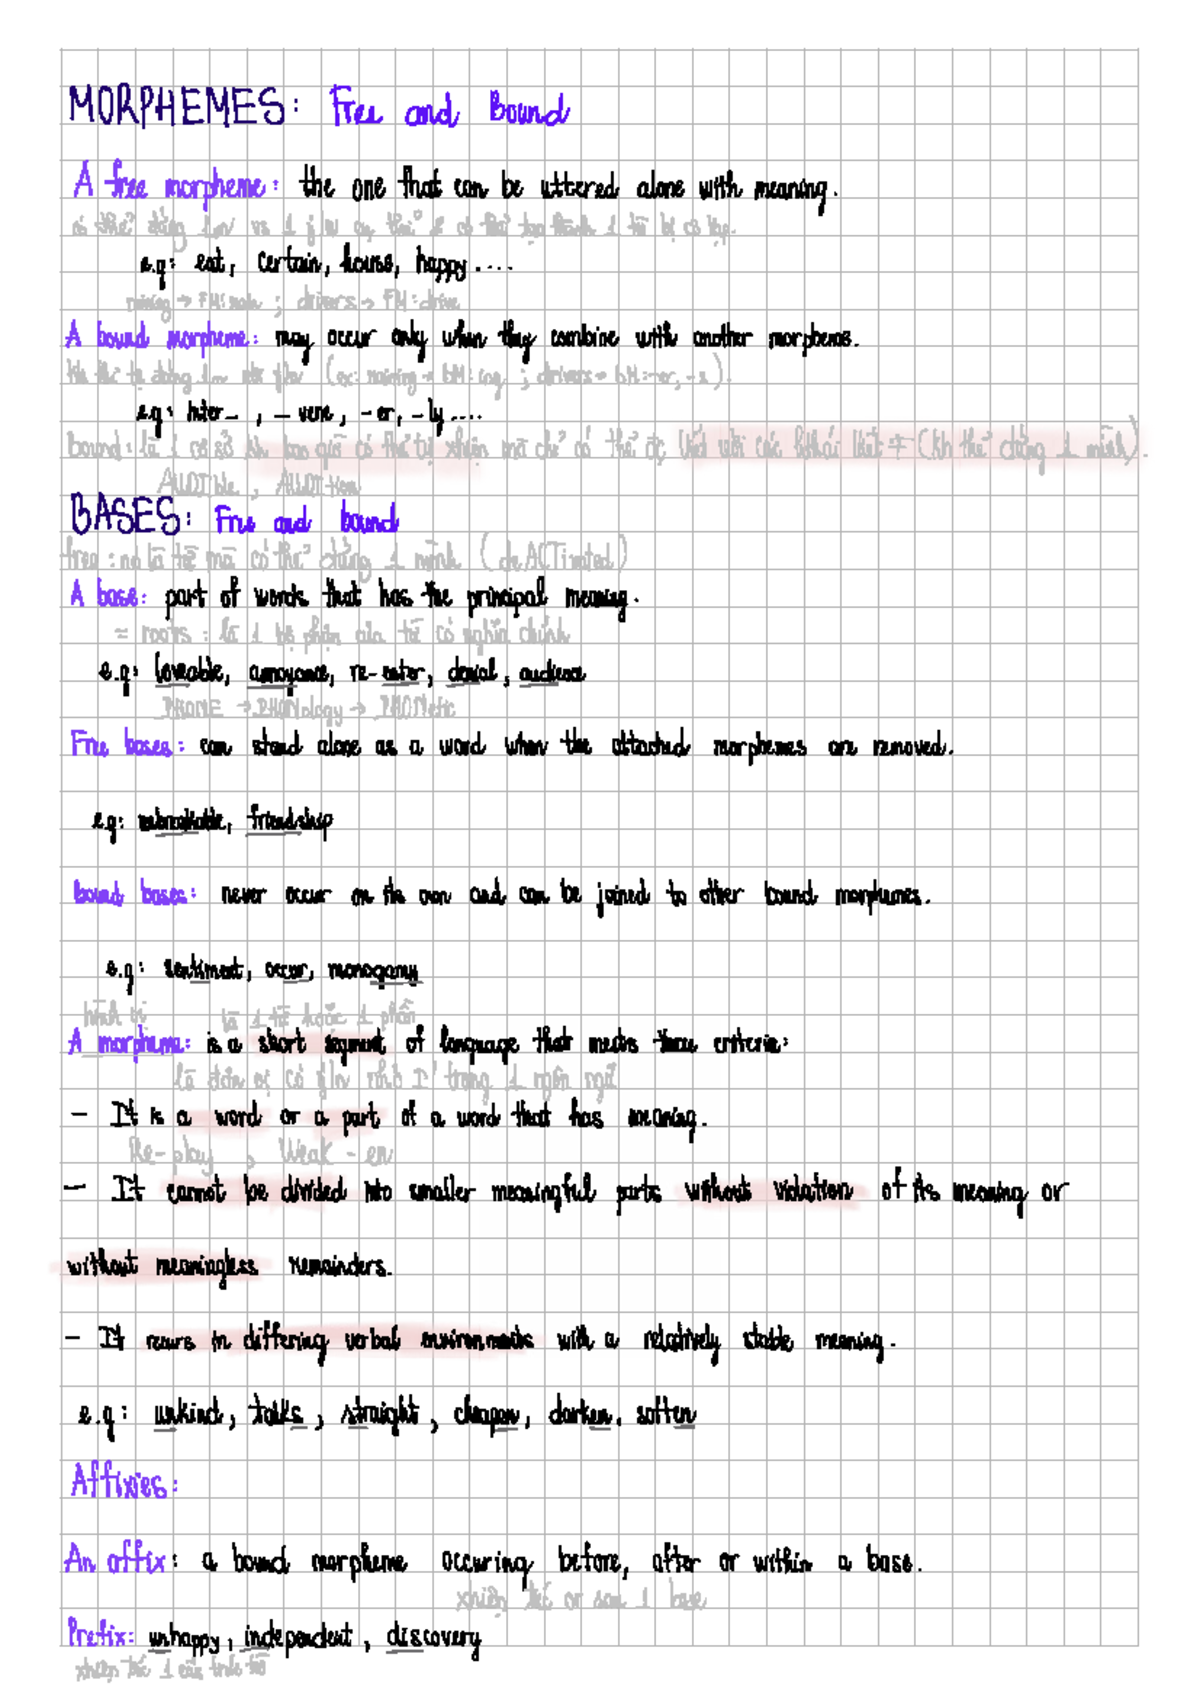 MORPHEMES: Free and Bound
A free morpheme: the one that can be uttered alone with meaning.
có thể đứng 1 có thể tạo thành 1 từ
e.g: eat, certain, house, happy....
→ FM: ; drivers → FM: drive
A bound morpheme: may occur only when they combine with another morpheme.
đứng (ex: → BM: ing ; drivers → BM: -er, -s).
e.g: Inter_ , _ vene, -er, -ly....
Bound: là 1 cơ sở kh bao giờ có thể tự xhiện mà chỉ có thể đc với các khác (kh thể đứng 1 mình).
AUDIble, AUDItion
BASES: Free and bound
free: nó là từ mà có thể đứng 1 mình (deACTivated)
A base: part of words that has the principal meaning.
= roots: là 1 bộ phận của từ có nghĩa chính
e.g: loveable, annoyance, re-enter, denial, audience
PHONE → PHONology → PHONetic
Free bases: can stand alone as a word when the attached morphemes are removed.
e.g: unbreakable, friendship
Bound bases: never occur on its own and can be joined to other bound morphemes.
e.g: sentiment, occur, monogamy
hình vị là 1 từ hoặc 1 phần
A morpheme: is a short segment of language that meets three criteria:
là đơn vị có nhỏ I' trong 1 ngôn ngữ
- It is a word or a part of a word that has meaning.
Re-play, Weak-en
- It cannot be divided into smaller meaningful parts without violation of its meaning or
without meaningless remainders.
- It recurs in differing verbal environments with a relatively stable meaning.
e.g: unkind, talks, straight, cheapen, darken, soften
Affixies:
An affix: a bound morpheme occuring before, after or within a base.
xhiện trc or sau 1 base
Prefix: unhappy, independent, discovery
xhiện trc 1